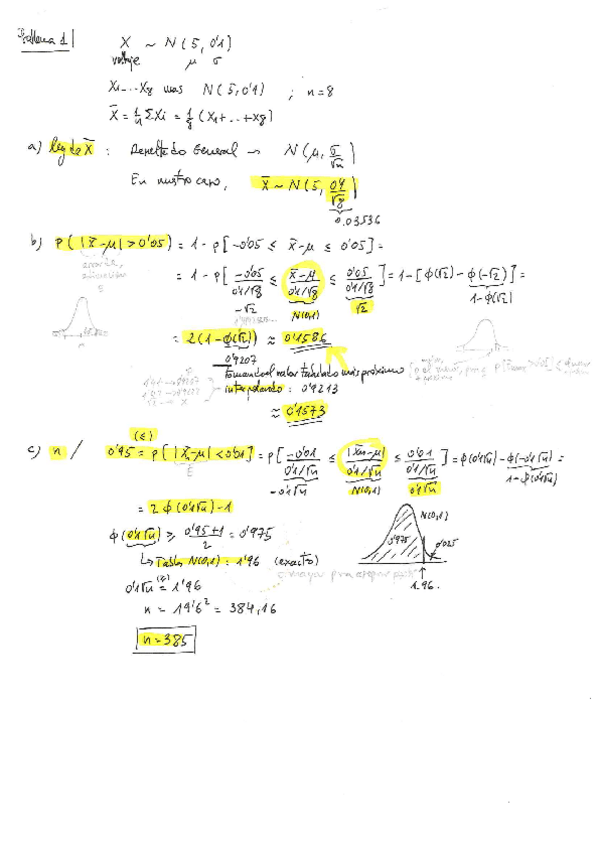 Problema 1
X ~ N(5, 0'1)
voltaje μ σ
X1...X8 mas N(5, 0'1) ; n=8
X̄ = 1/n ΣXi = 1/8 (X1+...+X8)
a) ley de X̄ : Resultado General → N(μ, σ/√n)
En nuestro caso, X̄ ~ N(5, 0'1/√8)
0.03536
b) P(|X̄-μ|>0'05) = 1 - P[-0'05 ≤ X̄-μ ≤ 0'05] =
= 1 - P[-0'05/(0'1/√8) ≤ (X̄-μ)/(0'1/√8) ≤ 0'05/(0'1/√8)] = 1-[ϕ(√2)-ϕ(-√2)] =
-√2 N(0,1) √2 1-ϕ(√2)
= 2(1-ϕ(√2)) ≈ 0'1586
0'9207
Tomando el valor tabulado más próximo
interpolando: 0'9213
≈ 0'1573
(≤)
c) n / 0'95 = P[|X̄n-μ|<0'01] = P[-0'01/(0'1/√n) ≤ |X̄n-μ|/(0'1/√n) ≤ 0'01/(0'1/√n)] = ϕ(0'1√n)-ϕ(-0'1√n) =
ε -0'1√n N(0,1) 0'1√n 1-ϕ(0'1√n)
= 2ϕ(0'1√n)-1
ϕ(0'1√n) ≥ (0'95+1)/2 = 0'975
N(0,1) 0'975 0'025 1.96.
↳ Tablas N(0,1) : 1'96 (exacto)
0'1√n (≥)= 1'96
n = 19'6² = 384,16
n = 385